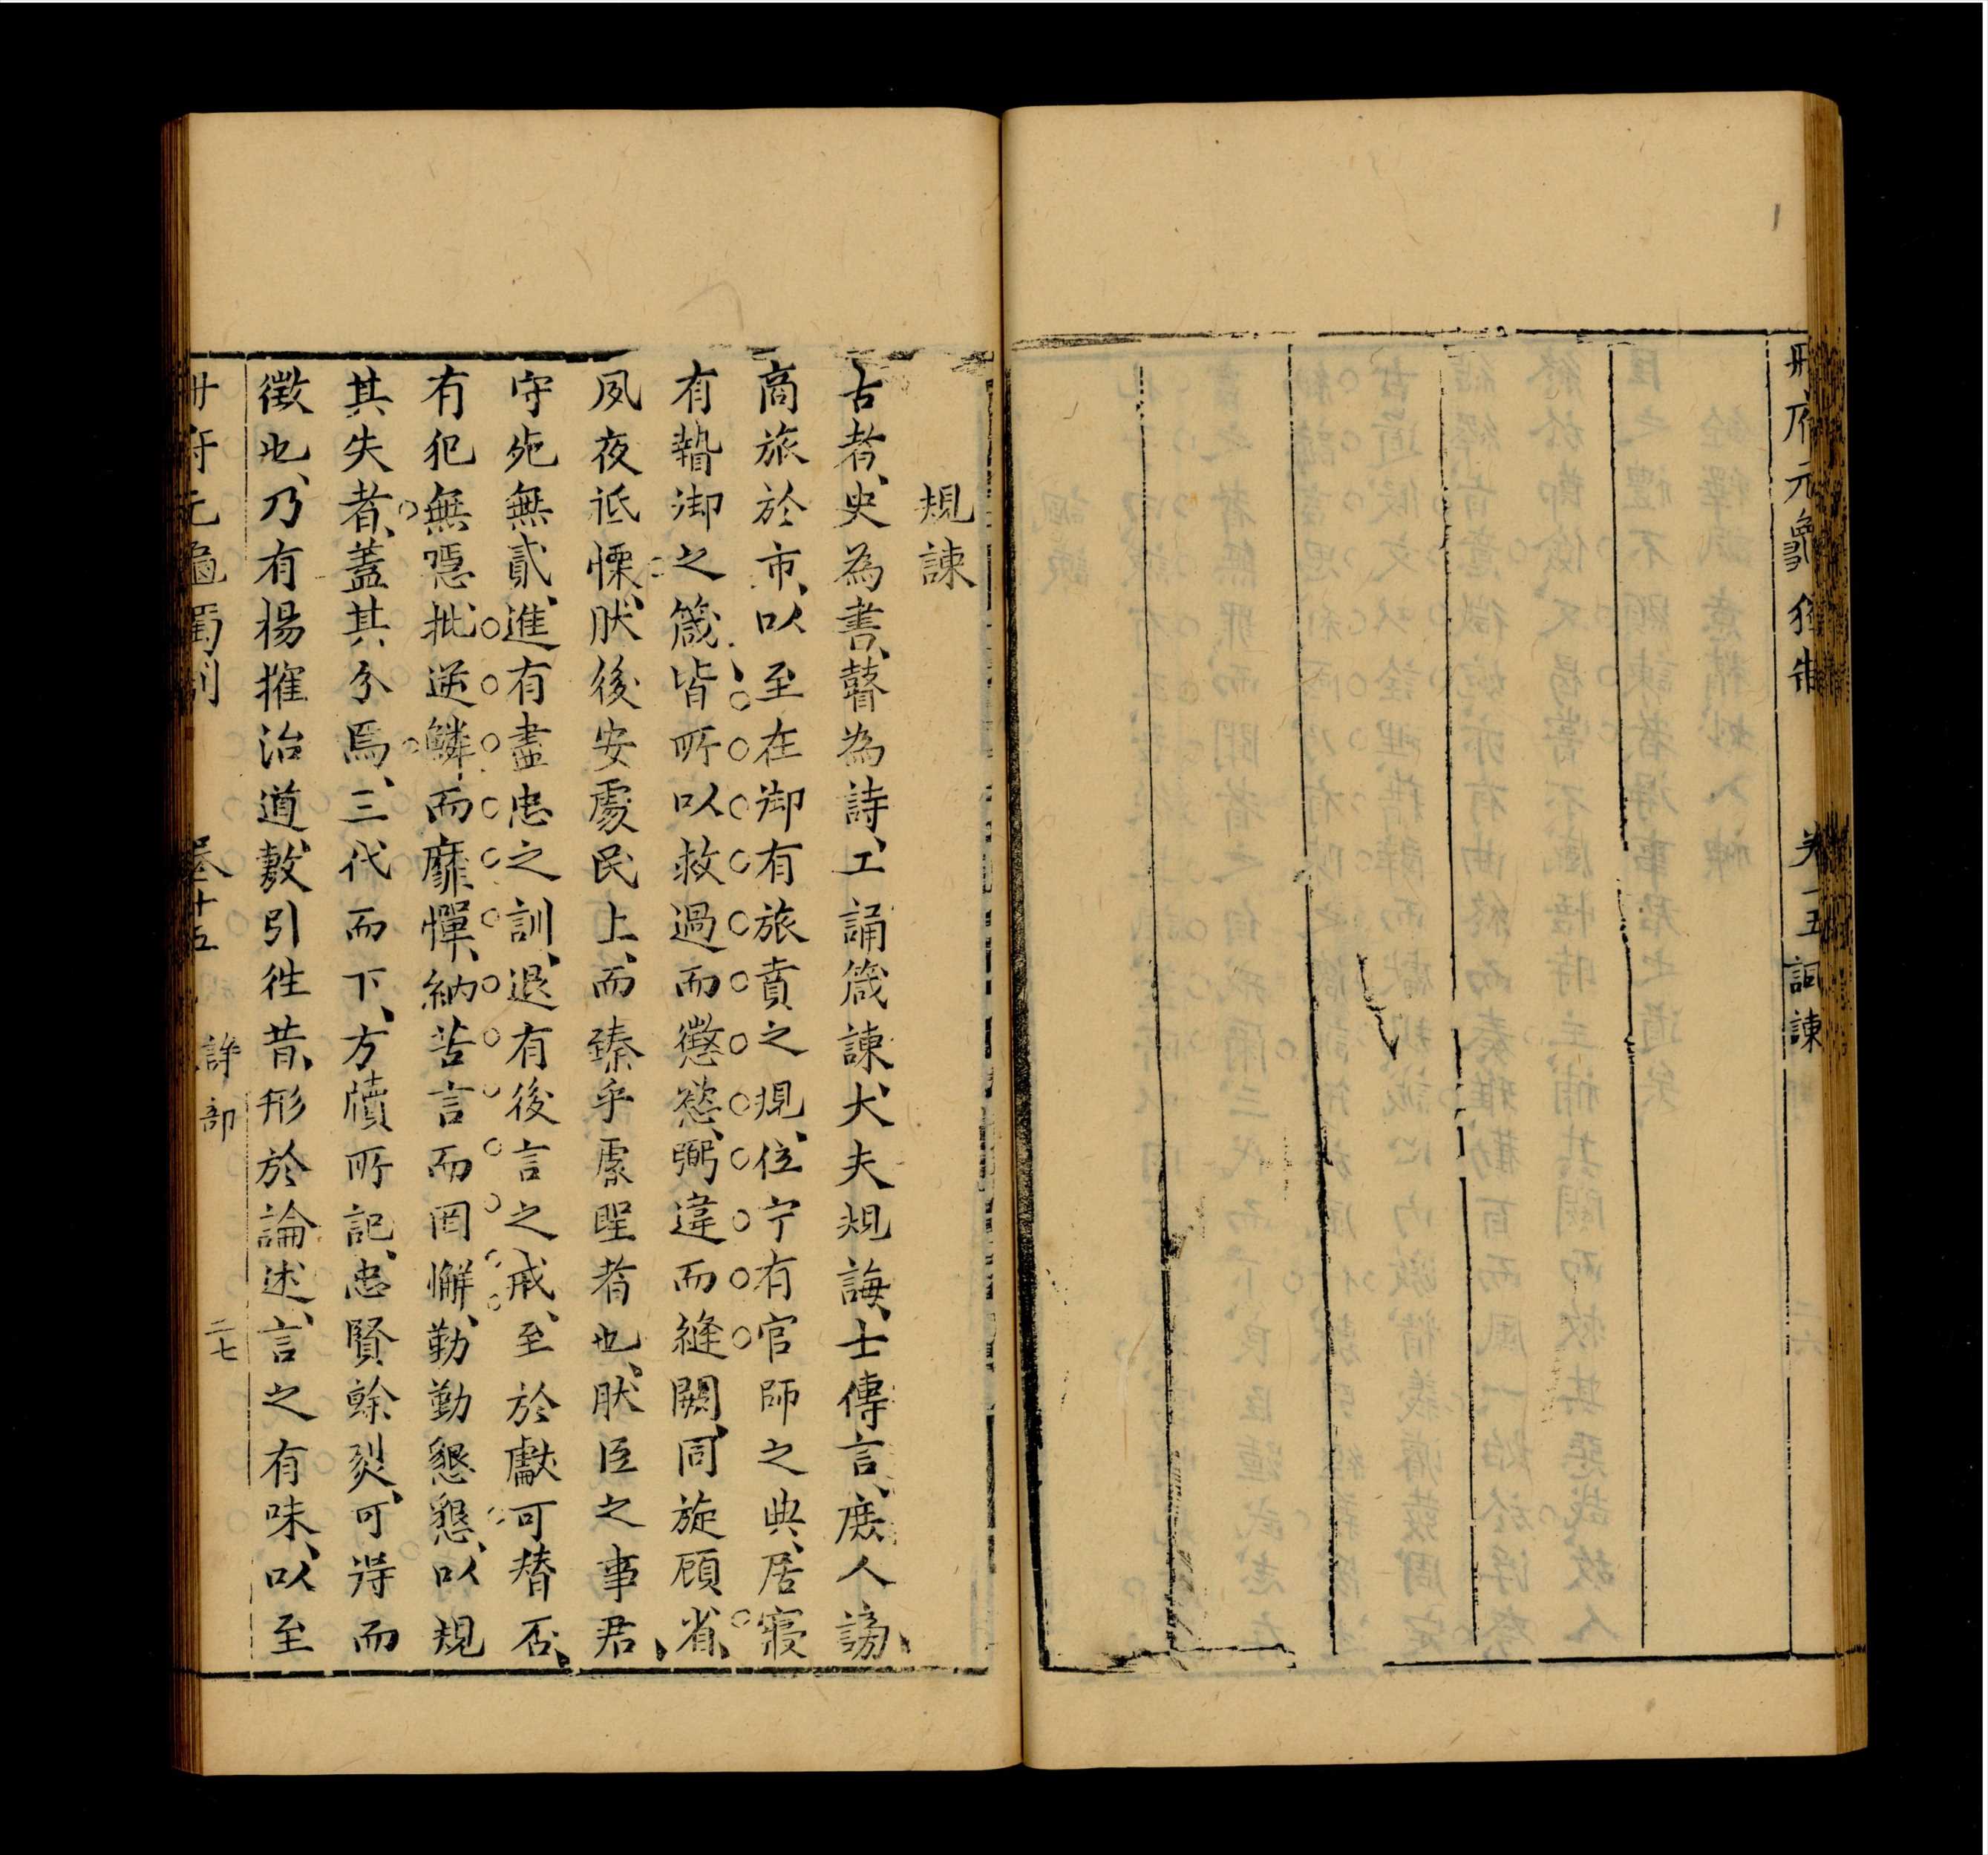 冊府元龜獨制　卷十五　諷諫
規諫
古者、史為書、瞽為詩、工誦箴諫、大夫規誨、士傳言、庶人謗、
商旅於市、以至在御有旅賁之規、位宁有官師之典、居寢
有暬御之箴、皆所以救過而懲慾、弼違而縫闕、同旋顧省、
夙夜祗慄、肰後安處民上、而臻乎虖聖者也、肰臣之事君、
守死無貳、進有盡忠之訓、退有後言之戒、至於獻可替否、
有犯無隱、批逆鱗而靡憚、納苦言而罔懈、勤勤懇懇、以規
其失者、蓋其分焉、三代而下、方牘所記、忠賢餘烈、可得而
徵也、乃有揚搉治道、敷引徃昔、形於論述、言之有味、以至
冊府元龜獨制　卷十五　諍部　二七